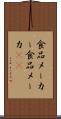 食品メーカ
ー食品メー
カ